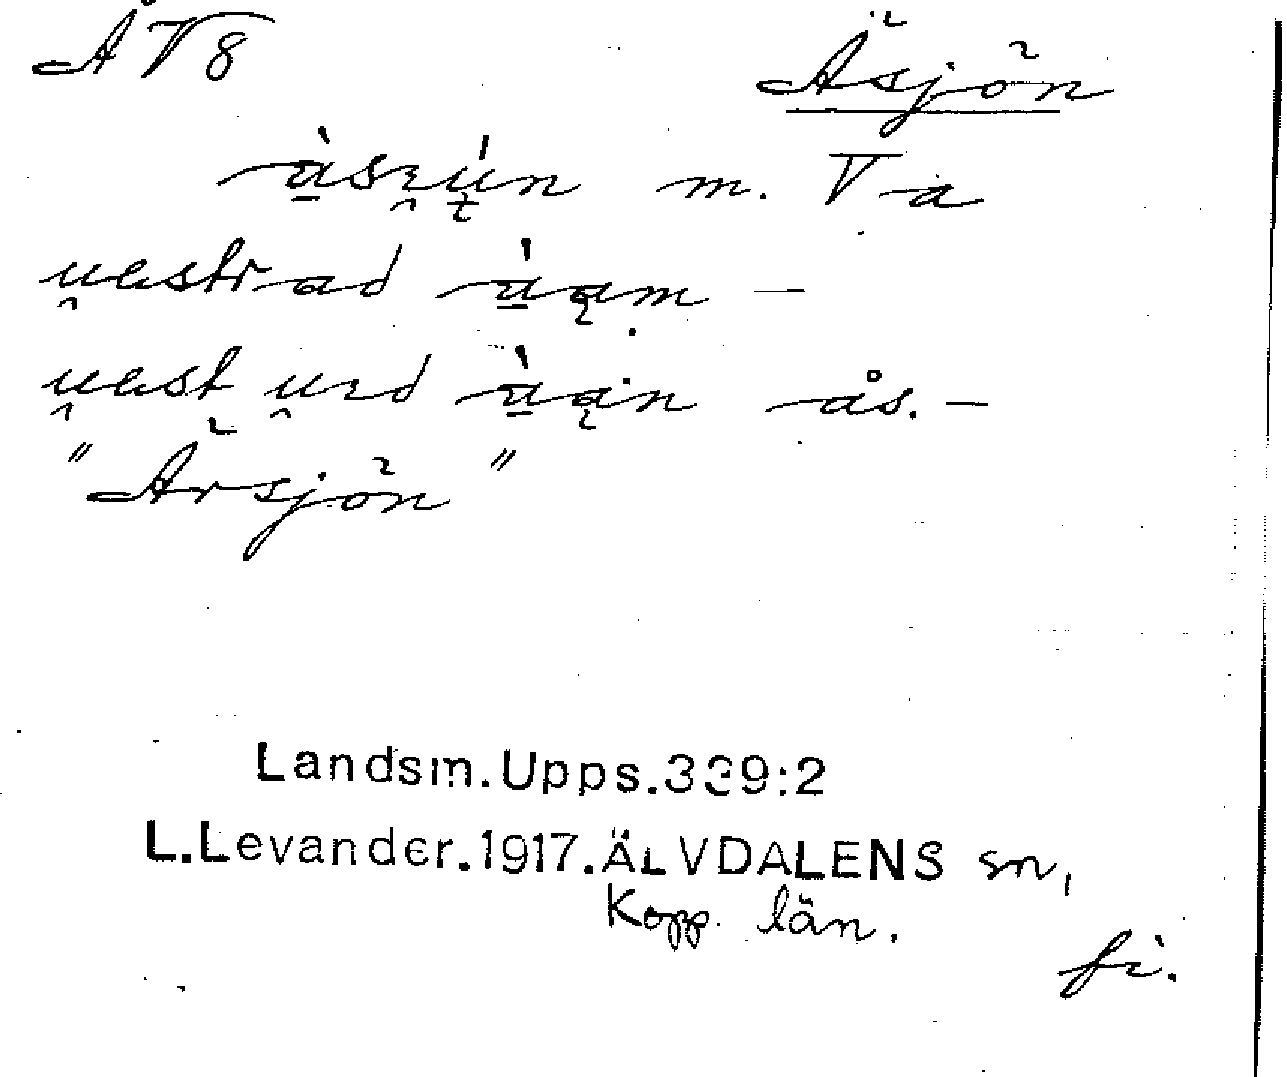 ÅV8
Åsjön
àsɿú̯n m. Va
u̯estrad ùąm –
u̯est u̯ɿd ùąn ås. –
"Årsjön"
Landsm.Upps.339:2
L.Levander.1917.ÄLVDALENS sn,
Kopp. län.
fi.